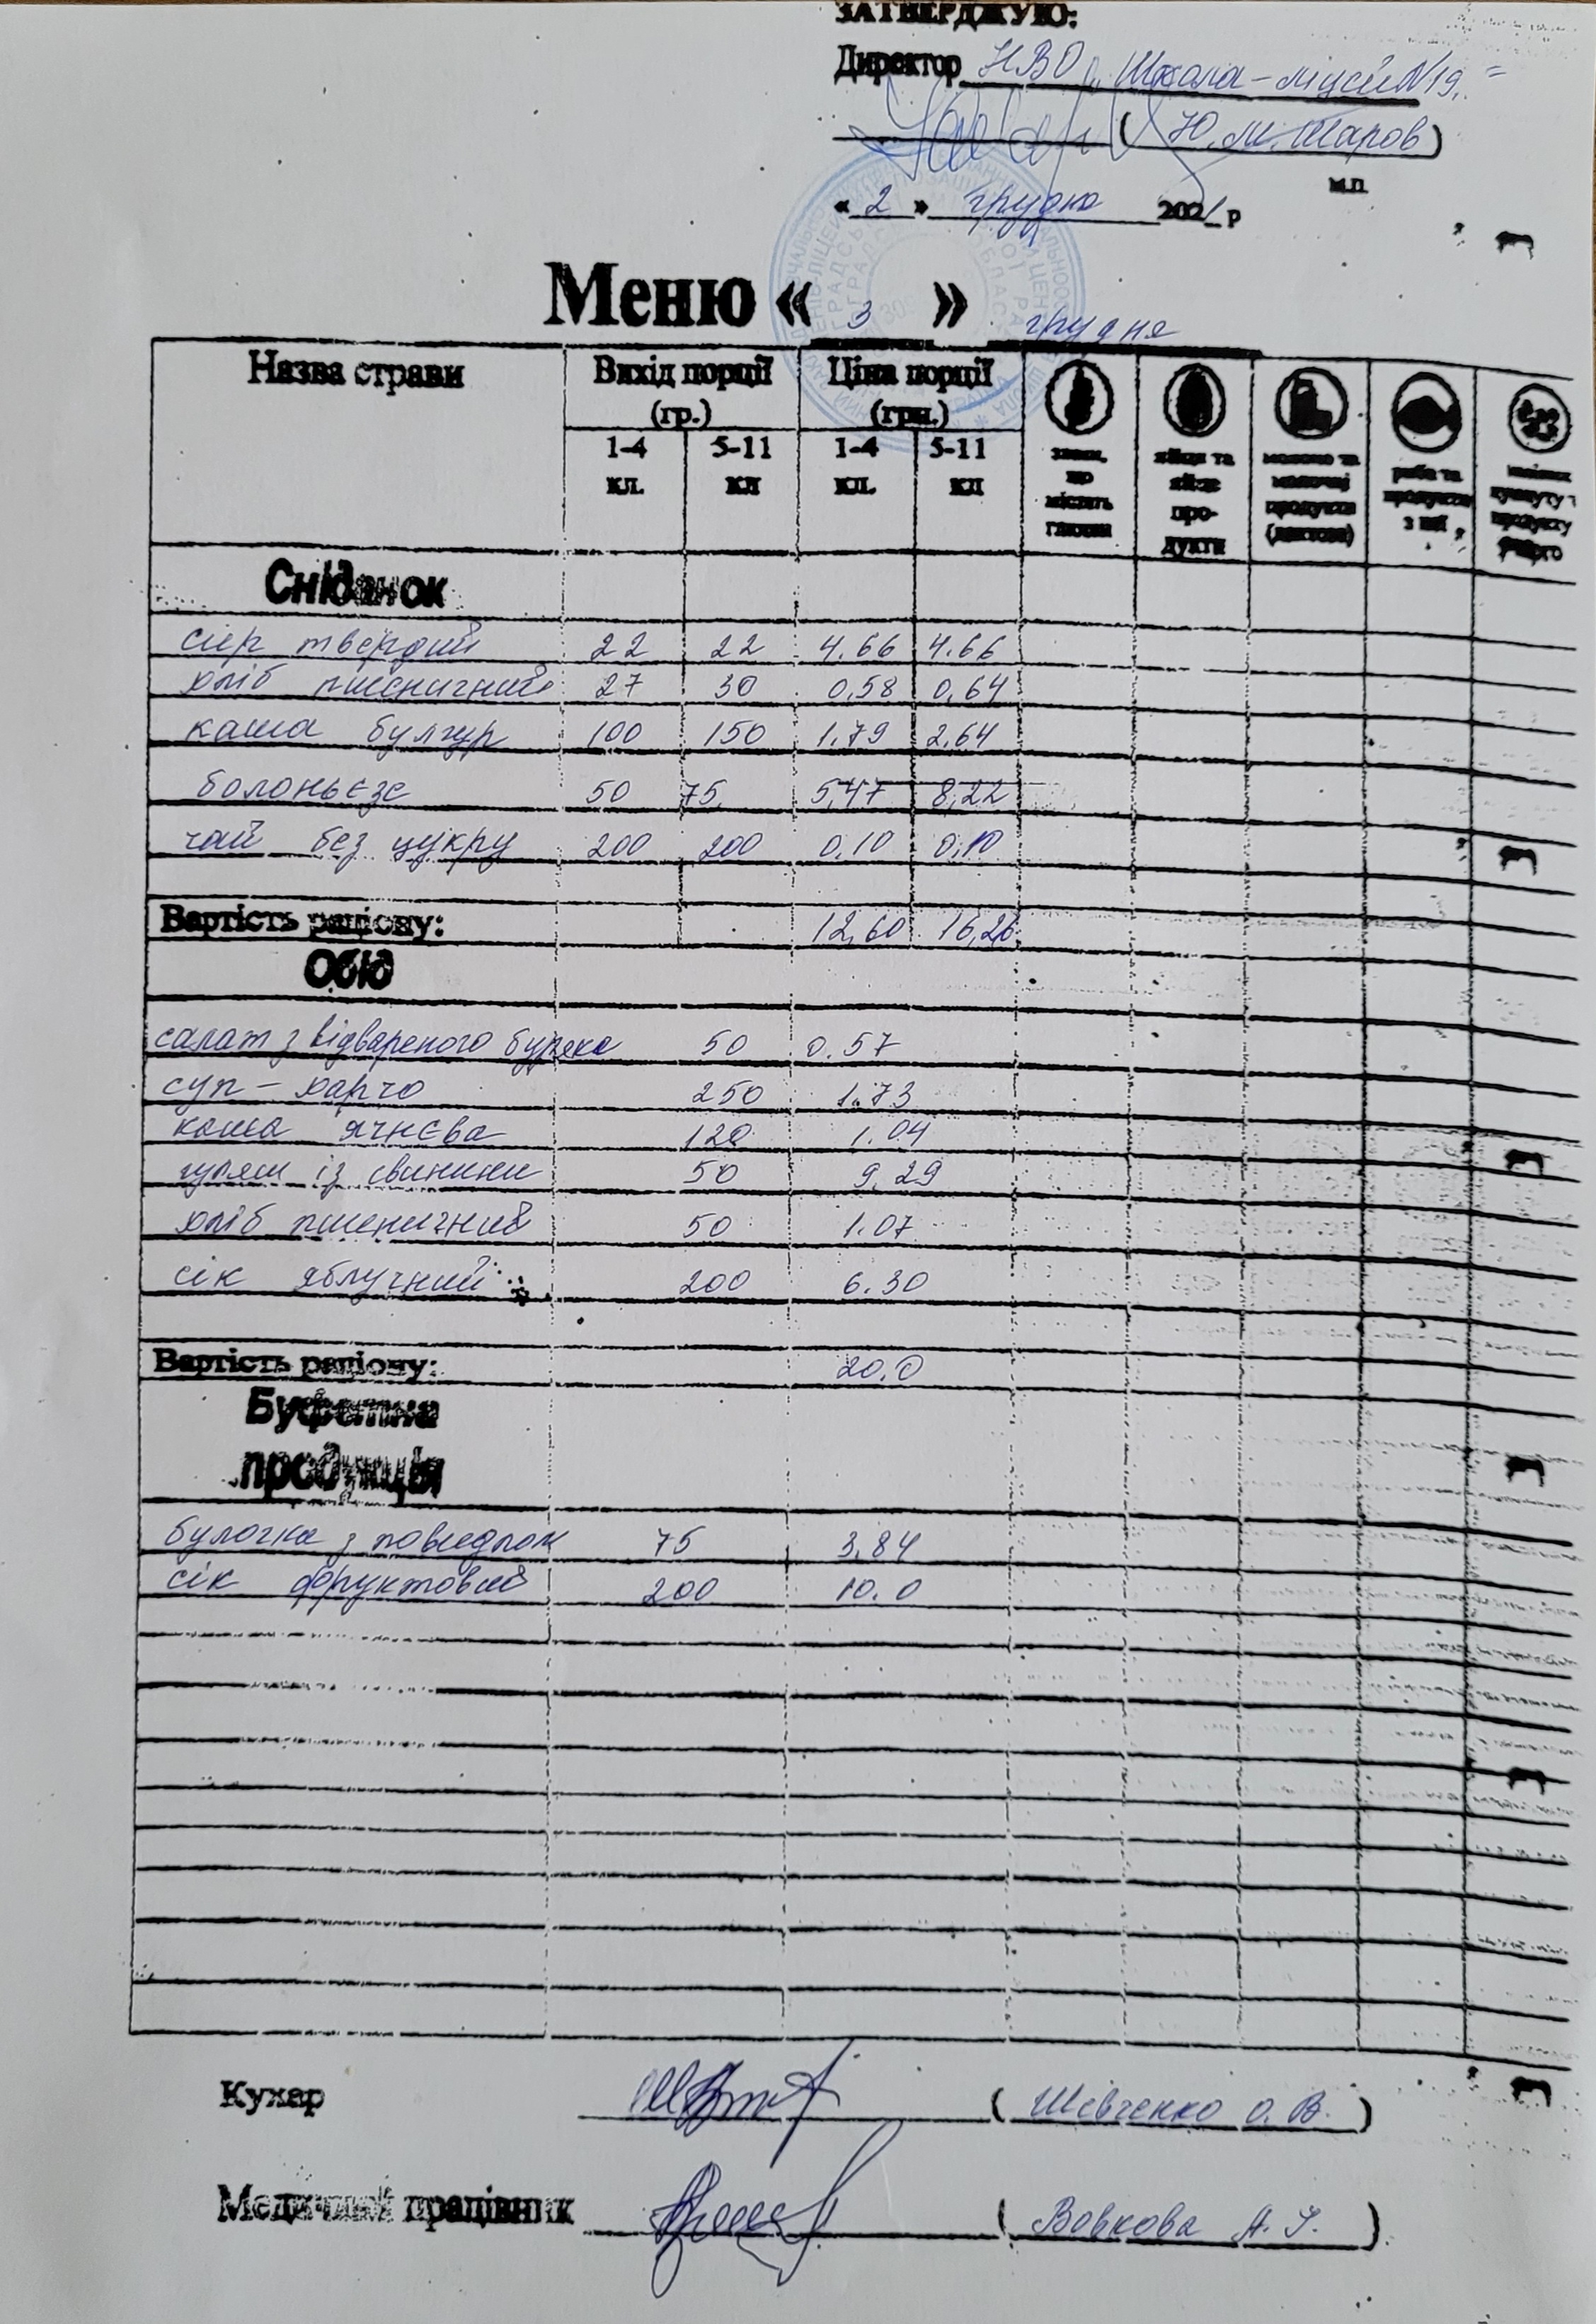 ЗАТВЕРДЖУЮ:
Директор НВО „Школа-ліцей N19"
(Ю.М. Шаров)
м.п.
« 2 » грудня 2021 р
Меню « 3 » грудня
Назва страви Вихід порції (гр.) Ціна порції (грн.)
1-4 кл. 5-11 кл 1-4 кл. 5-11 кл
злаки, що містять глютен
яйця та яйце про-дукти
молоко та молочні продукти (лактоза)
риба та продукти з неї
кунжуту
продукту
Сніданок
сир твердий 22 22 4.66 4.66
хліб пшеничний 27 30 0,58 0,64
каша булгур 100 150 1.79 2.64
болоньєзе 50 75 5,47 8,22
чай без цукру 200 200 0.10 0.10
Вартість раціону: 12,60 16,26
Обід
салат з відвареного буряка 50 0.57
суп-харчо 250 1.73
каша ячнєва 120 1.04
гуляш із свинини 50 9,29
хліб пшеничний 50 1.07
сік яблучний 200 6.30
Вартість раціону: 20.0
Буфетна
продукція
булочка з повидлом 75 3.84
сік фруктовий 200 10.0
Кухар (Шевченко О.В.)
Медичний працівник (Вовкова А.І.)